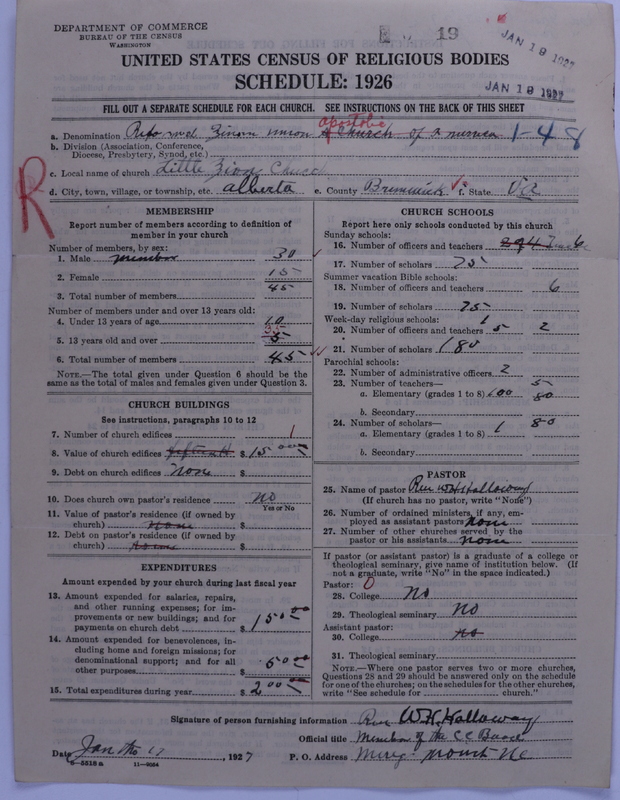 DEPARTMENT OF COMMERCE
BUREAU OF THE CENSUS
WASHINGTON
19
JAN 18 1927
JAN 18 1927
UNITED STATES CENSUS OF RELIGIOUS BODIES
SCHEDULE: 1926
FILL OUT A SEPARATE SCHEDULE FOR EACH CHURCH. SEE INSTRUCTIONS ON THE BACK OF THIS SHEET
a. Denomination Zion union apostolic Church of 1-48
b. Division (Association, Conference,
Diocese, Presbytery, Synod, etc.)
c. Local name of church Little Zion
d. City, town, village, or township, etc. Alberta e. County Brunswick f. State Va
R
MEMBERSHIP
Report number of members according to definition of
member in your church
Number of members, by sex:
1. Male 30
2. Female 15
3. Total number of members 45
Number of members under and over 13 years old:
4. Under 13 years of age 10
5. 13 years old and over 35
6. Total number of members 45
NOTE.—The total given under Question 6 should be
the same as the total of males and females given under Question 3.
CHURCH BUILDINGS
See instructions, paragraphs 10 to 12
7. Number of church edifices 1
8. Value of church edifices $ 1500
9. Debt on church edifices None $
10. Does church own pastor's residence no
Yes or No
11. Value of pastor's residence (if owned by
church) None $
12. Debt on pastor's residence (if owned by
church) None $
EXPENDITURES
Amount expended by your church during last fiscal year
13. Amount expended for salaries, repairs,
and other running expenses; for im-
provements or new buildings; and for
payments on church debt $ 150 00
14. Amount expended for benevolences, in-
cluding home and foreign missions; for
denominational support; and for all
other purposes $ 50 00
15. Total expenditures during year $ 200
CHURCH SCHOOLS
Report here only schools conducted by this church
Sunday schools:
16. Number of officers and teachers 6
17. Number of scholars 75
Summer vacation Bible schools:
18. Number of officers and teachers 6
19. Number of scholars 75
Week-day religious schools: 1
20. Number of officers and teachers 5 2
21. Number of scholars 180
Parochial schools:
22. Number of administrative officers 2
23. Number of teachers—
a. Elementary (grades 1 to 8)
b. Secondary
24. Number of scholars—
a. Elementary (grades 1 to 8) 1 80
b. Secondary
PASTOR
25. Name of pastor Rev W.H. Holloway
(If church has no pastor, write "None")
26. Number of ordained ministers, if any, em-
ployed as assistant pastors none
27. Number of other churches served by the
pastor or his assistants none
If pastor (or assistant pastor) is a graduate of a college or
theological seminary, give name of institution below. (If
not a graduate, write "No" in the space indicated.)
Pastor: 0
28. College No
29. Theological seminary NO
Assistant pastor:
30. College no
31. Theological seminary
NOTE.—Where one pastor serves two or more churches,
Questions 28 and 29 should be answered only on the schedule
for one of the churches; on the schedules for the other churches,
write "See schedule for church."
Signature of person furnishing information Rev W.H. Holloway
Official title Member of the
Date Jan 17, 1927 P. O. Address
8—5518 a 11—9084